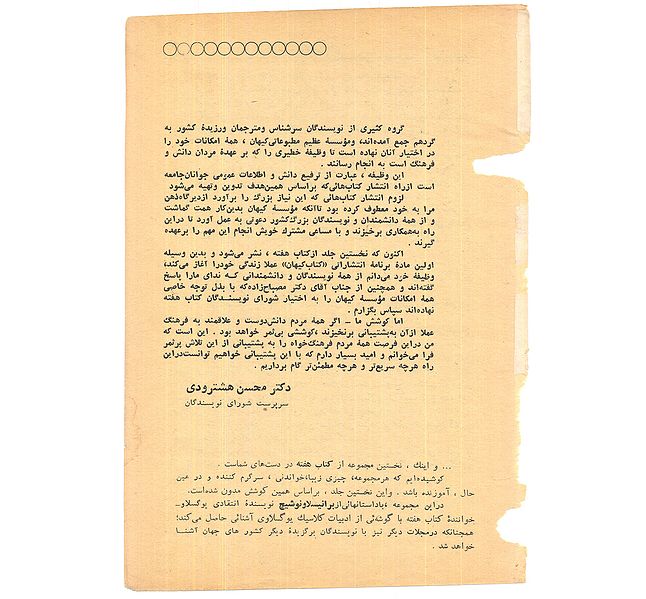 گروه کثیری از نویسندگان سرشناس ومترجمان ورزیدهٔ کشور به
گردهم جمع آمده‌اند، ومؤسسهٔ عظیم مطبوعاتی‌کیهان ، همهٔ امکانات خود را
در اختیار آنان نهاده است تا وظیفهٔ خطیری را که بر عهدهٔ مردان دانش و
فرهنگ است به انجام رسانند .
این وظیفه ، عبارت از ترفیع دانش و اطلاعات عمومی جوانان‌جامعه
است ازراه انتشار کتاب‌هائی‌که براساس همین‌هدف تدوین وتهیه می‌شود
لزوم انتشار کتاب‌هائی که این نیاز بزرگ را برآورد ازدیرگاه‌ذهن
مرا به خود معطوف کرده بود تاآنکه مؤسسهٔ کیهان بدین‌کار همت گماشت
و از همهٔ دانشمندان و نویسندگان بزرگ‌کشور دعوتی به عمل آورد تا دراین
راه به‌همکاری برخیزند و با مساعی مشترك خویش انجام این مهم را برعهده
گیرند .
اکنون که نخستین جلد ازکتاب هفته ، نشر می‌شود و بدین وسیله
اولین مادهٔ برنامهٔ انتشاراتی «کتاب‌کیهان» عملا زندگی خودرا آغاز می‌کند،
وظیفهٔ خرد می‌دانم از همهٔ نویسندگان و دانشمندانی کــه ندای مارا پاسخ
گفته‌اند و همچنین از جناب آقای دکتر مصباح‌زاده‌که با بذل توجه خاصی
همهٔ امکانات مؤسسهٔ کیهان را به اختیار شورای نویسنــدگان کتاب هفته
نهاده‌اند سپاس بگزارم .
اما کوشش ما – اگر همهٔ مردم دانش‌دوست و علاقمند به فرهنگ
عملا ازآن به‌پشتیبانی برنخیزند ،کوششی بی‌ثمر خواهد بود . این است که
من دراین فرصت همهٔ مردم فرهنگ‌خواه را به پشتیبانی از این تلاش پرثمر
فرا می‌خوانم و امید بسیار دارم که با این پشتیبانی خواهیم توانست‌دراین
راه هرچه سریع‌تر و هرچه مطمئن‌تر گام برداریم .
دکتر محسن هشترودی
سرپرست شورای نویسندگان
... و اینك ، نخستین مجموعه از کتاب هفته در دست‌های شماست .
کوشیده‌ایم که هرمجموعه، چیزی زیبا،خواندنی ، سرگرم کننده و در عین
حال ، آموزنده باشد . واین نخستین جلد ، براساس همین کوشش مدون شده‌است.
دراین مجموعه ،باداستانهائی‌ازبرانیسلاونوشیچ نویسندهٔ انتقادی یوگسلاو–
خوانندهٔ کتاب هفته با گوشه‌ئی از ادبیات کلاسیك یوگسلاوی آشنائی حاصل می‌کند؛
همچنانکه درمجلات دیگر نیز با نویسندگان برگزیدهٔ دیگر کشور های جهان آشنــا
خواهد شد .